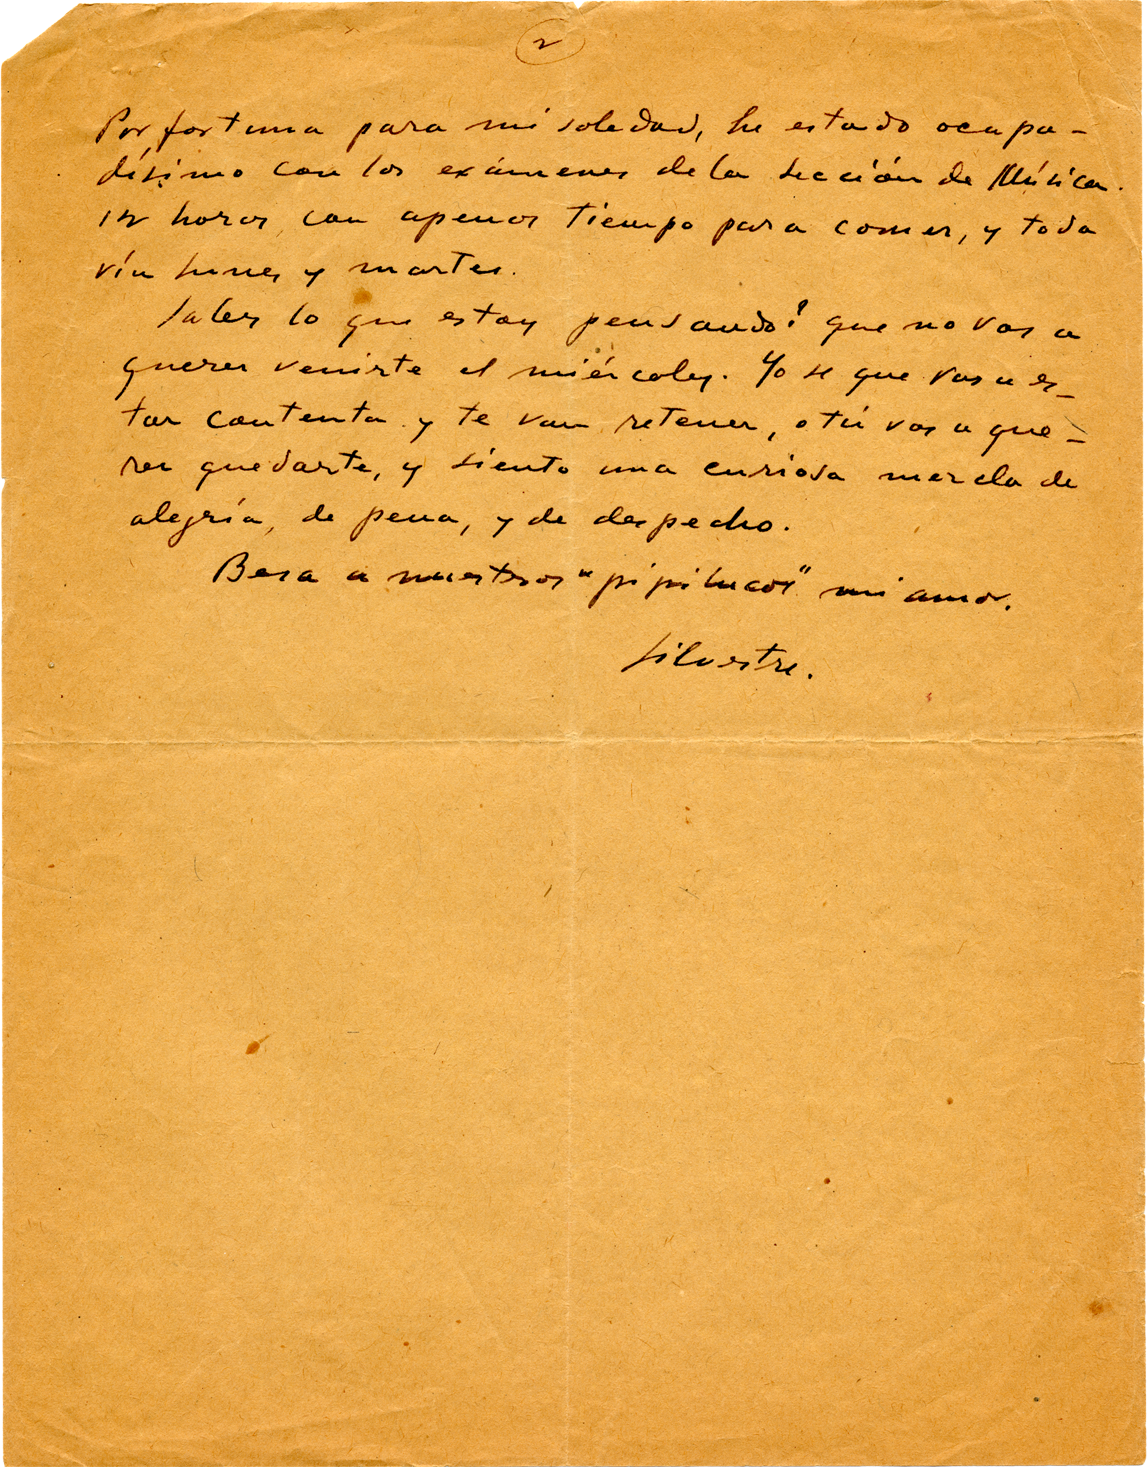 2
Por fortuna para mi soledad, he estado ocupa-
dísimo con los exámenes de la Sección de Música.
12 horas, con apenas tiempo para comer, y toda
vía lunes y martes.
Sabes lo que estoy pensando? que no vas a
querer venirte el miércoles. Yo se que vas a es-
tar contenta y te van retener, o tú vas a que-
rer quedarte, y siento una curiosa mezcla de
alegría, de pena, y de despecho.
Besa a nuestros "pipilucos" mi amor.
Silvestre.